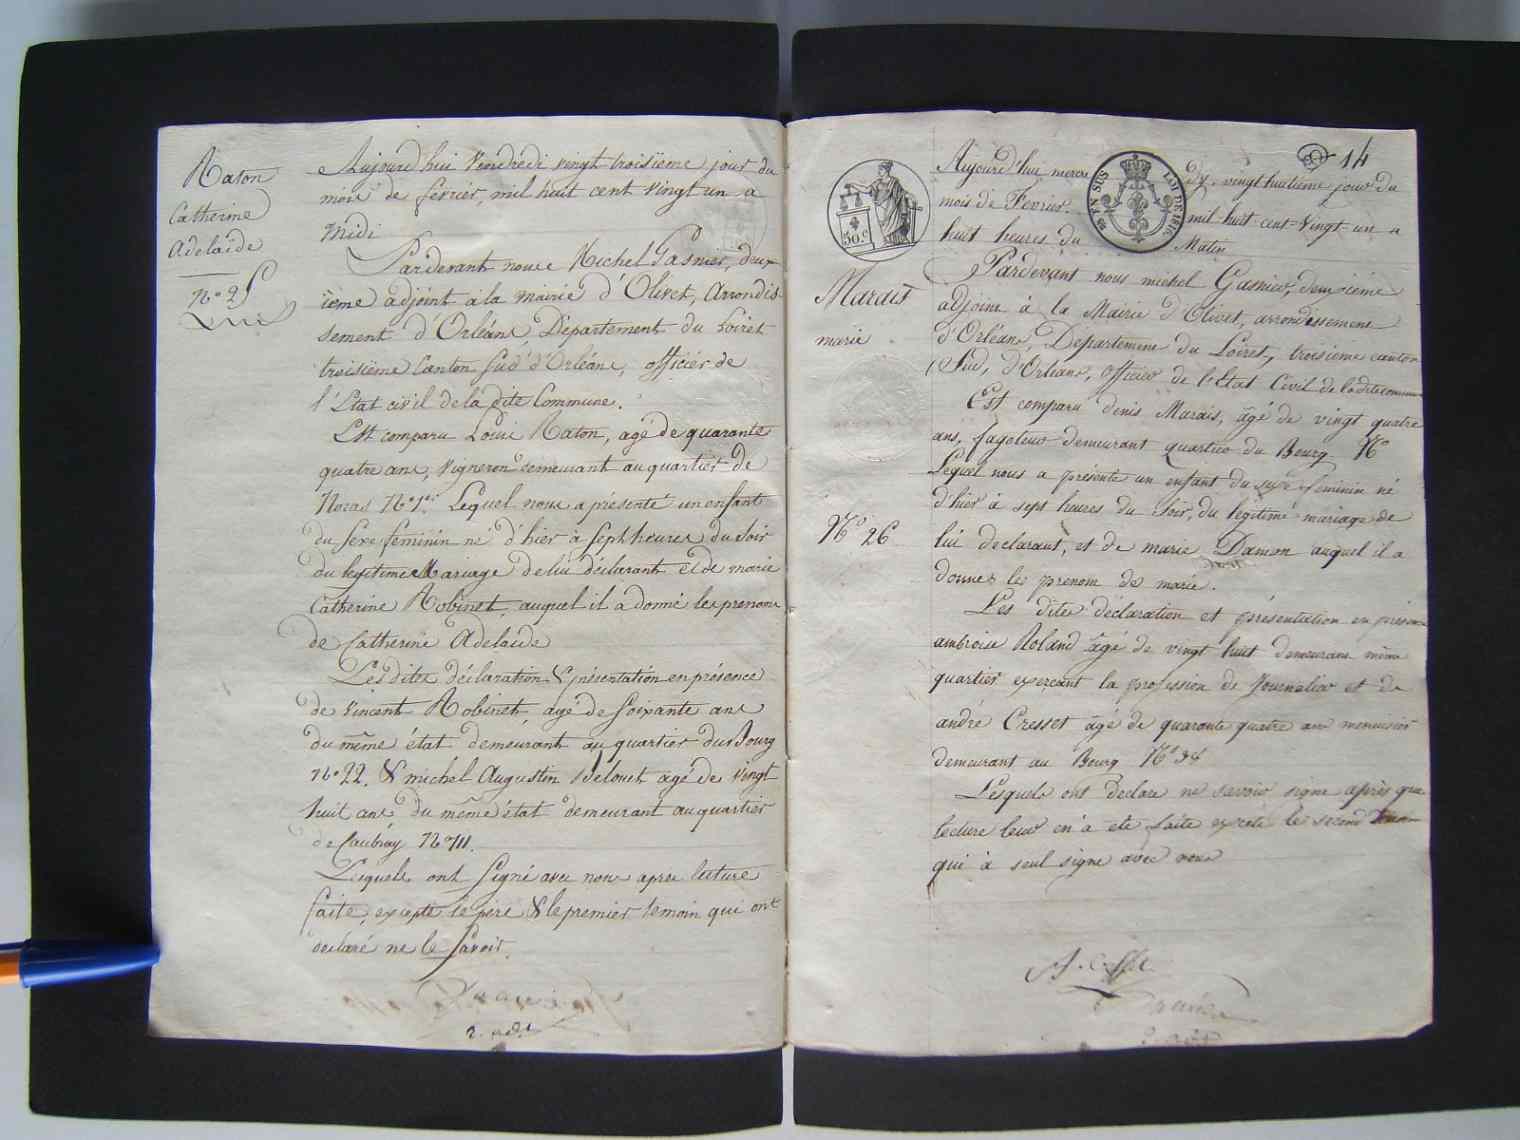 Raton
Catherine
Adelaïde
No 25
Aujourd'hui vendredi vingt troisième jour du
mois de fevrier, mil huit cent vingt un a
midi
Pardevant nous Michel Gasnier, deux-
ième adjoint a la mairie d'Olivet, Arrondis-
sement d'Orléans, Département du Loiret
troisième Canton Sud d'Orléans, officier de
l'Etat civil de la dite Commune.
Est comparu Louis Raton, agé de quarante
quatre ans, vigneron demeurant au quartier de
Noras No 1er. Lequel nous a présenté un enfant
du sexe féminin né d'hier à sept heures du soir
du legitime Mariage de lui déclarant et de marie
Catherine Robinet, auquel il a donné les prenoms
de Catherine Adelaïde
Les dites déclaration & présentation en présence
de Vincent Robinet, agé de soixante ans
du même état demeurant au quartier du Bourg
No 22. & michel Augustin Belouet agé de vingt
huit ans du même état demeurant au quartier
de Caubray No 111.
Lesquels ont signé avec nous apres lecture
faite, excepté le père & le premier temoin qui ont
declaré ne le savoir.
14
Aujourd'hui mercre dy, vingt huitieme jour du
mois de Fevrier mil huit cent vingt un a
huit heures du Matin
EN SUS LOI DE 1816
50.c
Marais
marie
No 26
Pardevant nous michel Gasnier, deuxième
adjoint à la Mairie d'Olivet, arrondissement
d'Orléans, Département du Loiret, troisieme canton
Sud, d'Orleans, officier de l'Etat Civil de la dite commune
Est comparu denis Marais, âgé de vingt quatre
ans, fagoteur demeurant quartier du Bourg No
Lequel nous a présenté un enfant du sexe feminin né
d'hier à sept heures du soir, du legitime mariage de
lui declarant, et de marie Damon auquel il a
donner le prenom de marie.
Les dites déclaration et présentation en présence
ambroise Roland âgé de vingt huit demeurant même
quartier exerçant la profession de journalier et de
andré Cresset âgé de quarante quatre ans menuisier
demeurant au Bourg No 34
Lesquels ont declare ne savoir signe après que
lecture leur en a ete faite excepté le second
qui a seul signe avec nous